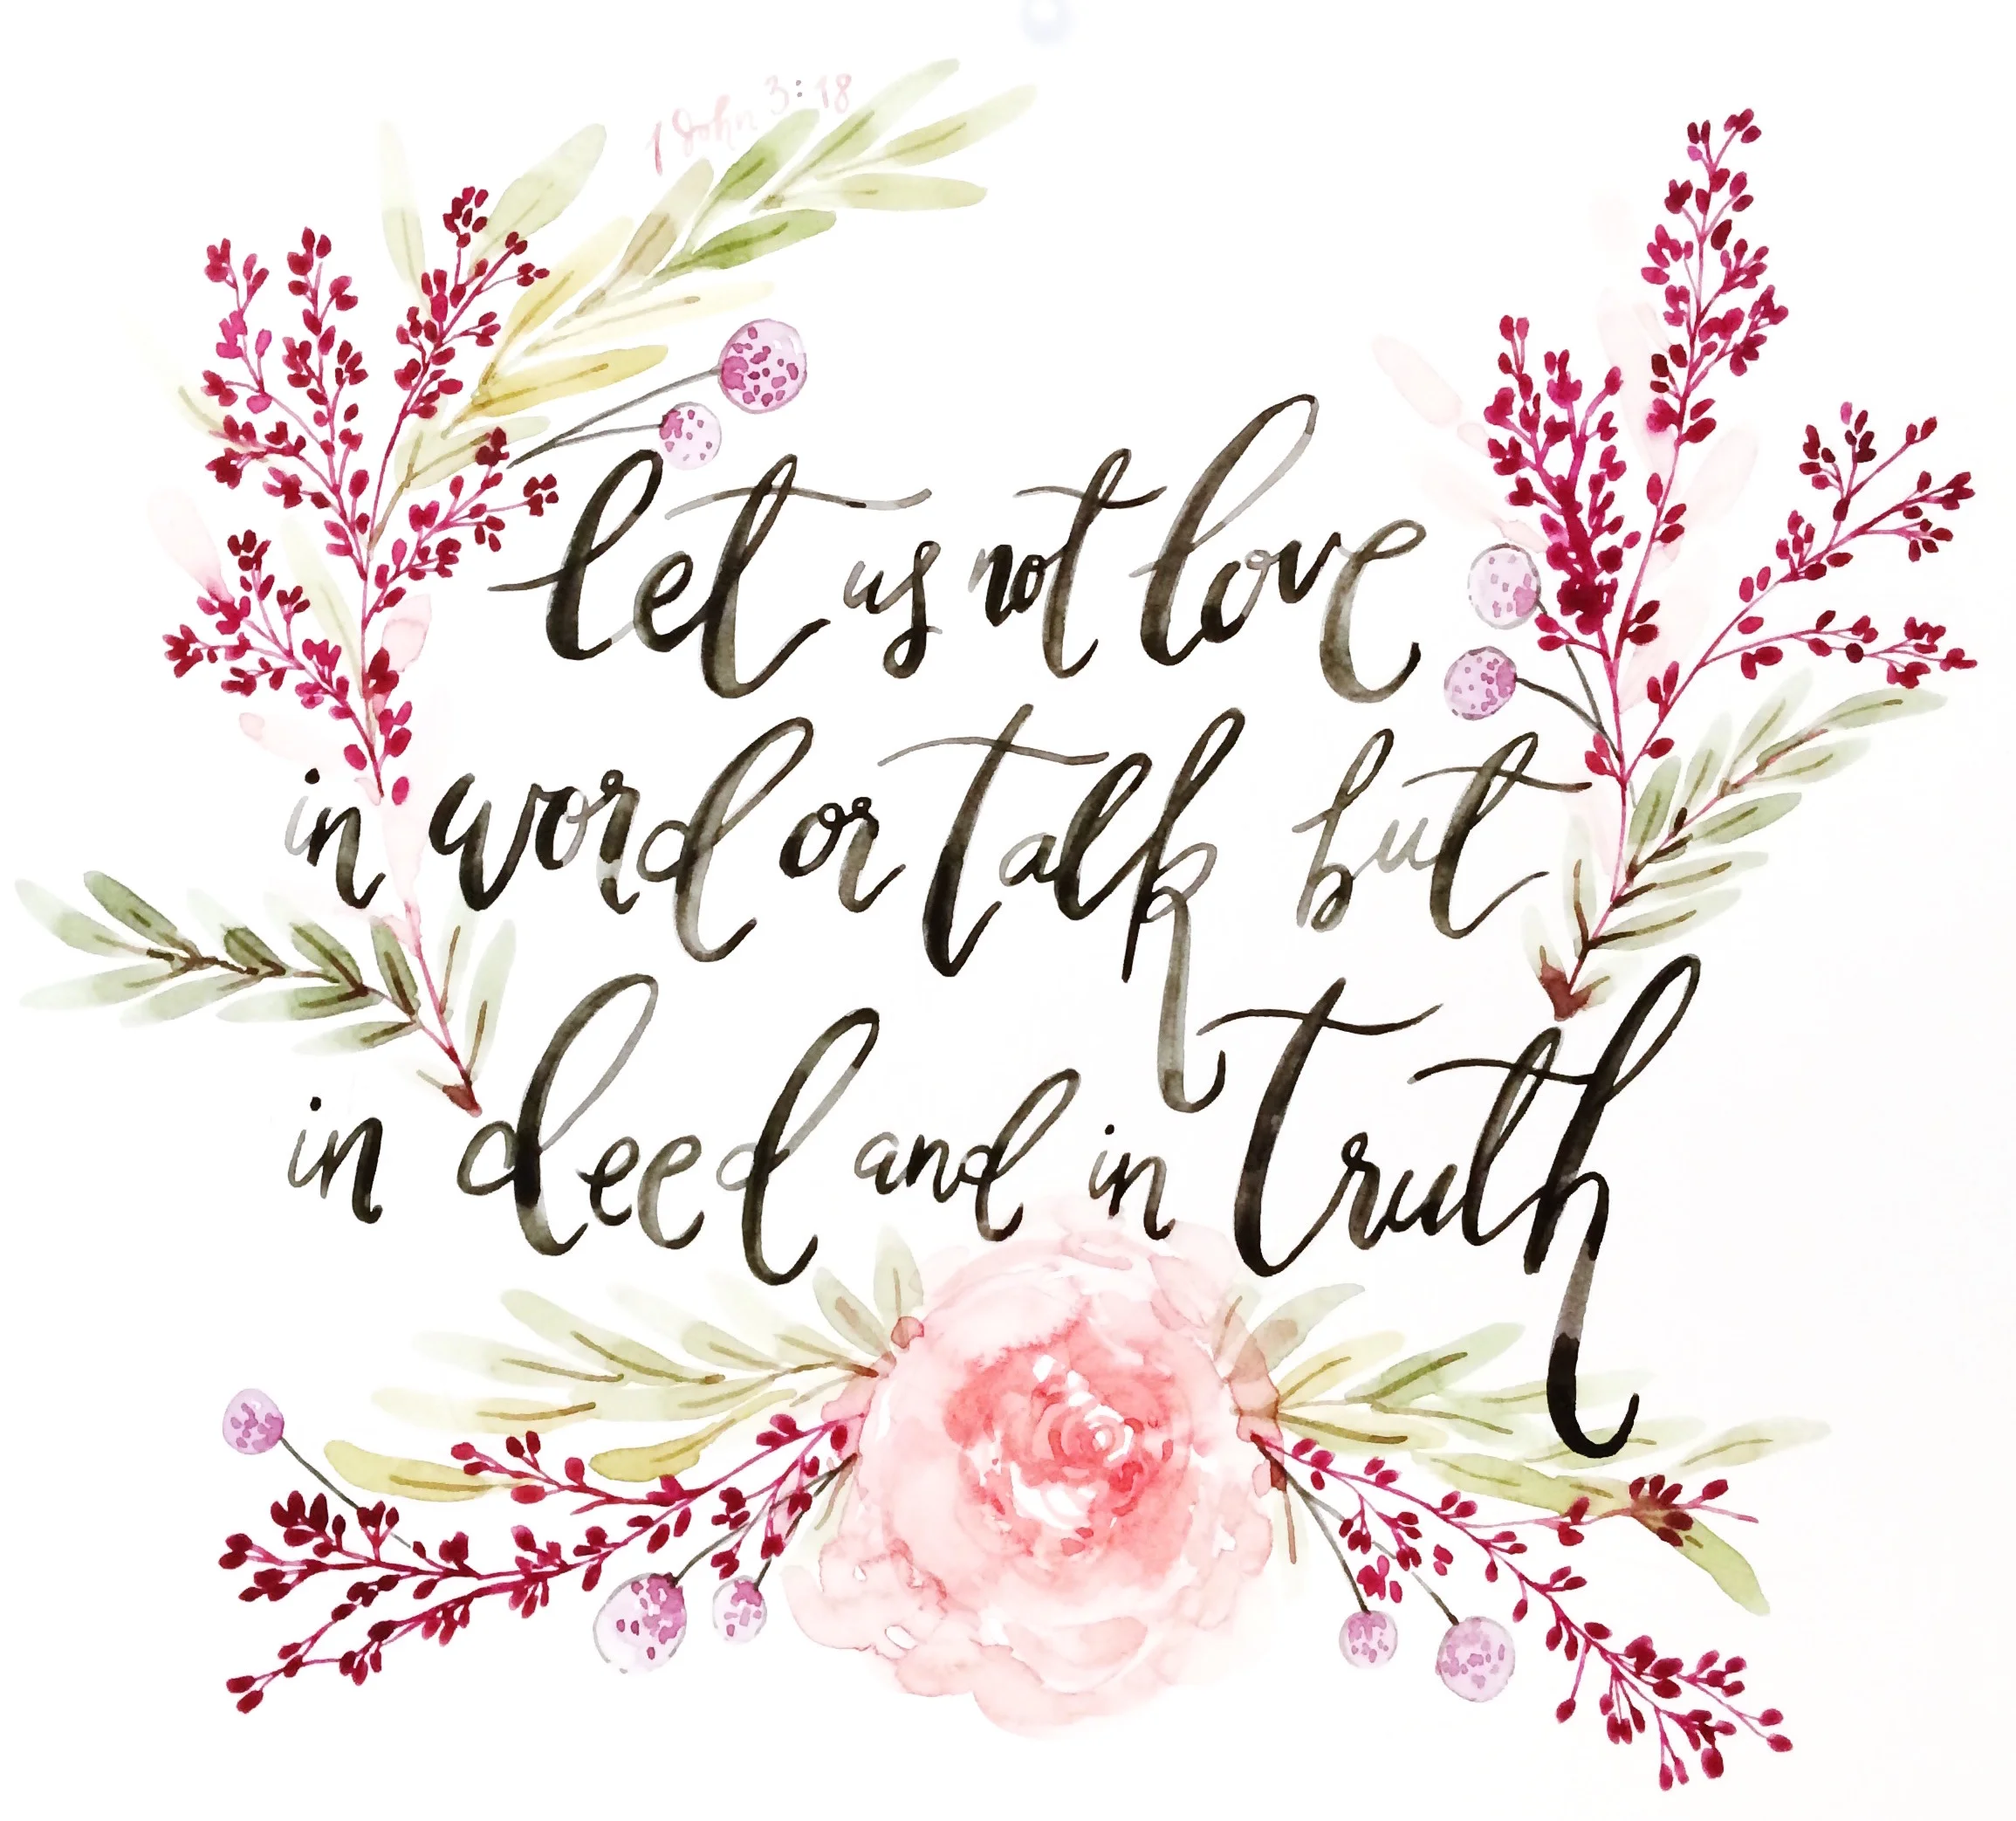 1 John 3:18
let us not love
in word or talk but
in deed and in truth